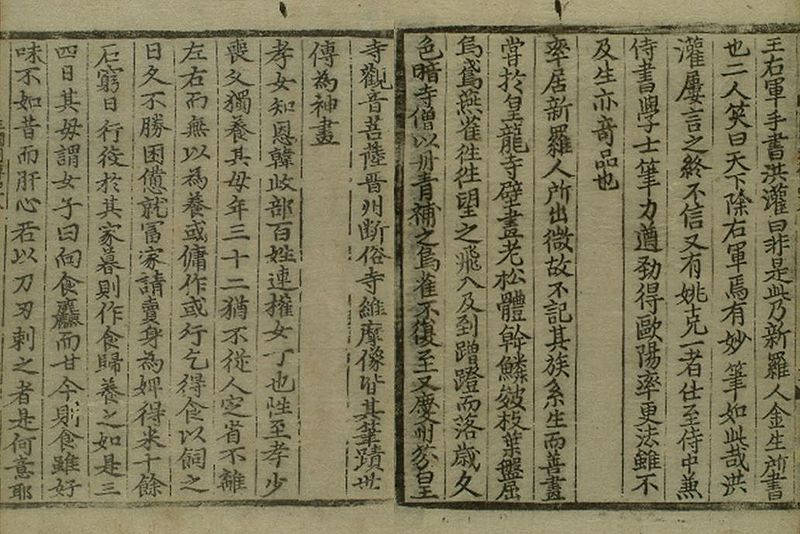 王右軍手書洪灌曰非是此乃新羅人金生所書
也二人笑曰天下除右軍焉有妙筆如此哉洪
灌屢言之終不信又有姚克一者仕至侍中兼
侍書學士筆力遒勁得歐陽率更法雖不
及生亦奇品也
率居新羅人所出微故不記其族系生而善畫
嘗於皇龍寺壁畫老松體幹鱗皴枝葉盤屈
烏鳶燕雀徃徃望之飛入及到蹭蹬而落歲久
色暗寺僧以丹青補之烏雀不復至又慶州芬皇
寺觀音菩薩晋州斷俗寺維摩像皆其筆蹟世
傳為神畫
孝女知恩韓歧部百姓連權女丁也性至孝少
喪父獨養其母年三十二猶不從人定省不離
左右而無以為養或傭作或行乞得食以飼之
日久不勝困憊就冨家請賣身為婢得米十餘
石窮日行役於其家暮則作食歸養之如是三
四日其母謂女子曰向食麤而甘今則食雖好
味不如昔而肝心若以刀刃刺之者是何意耶